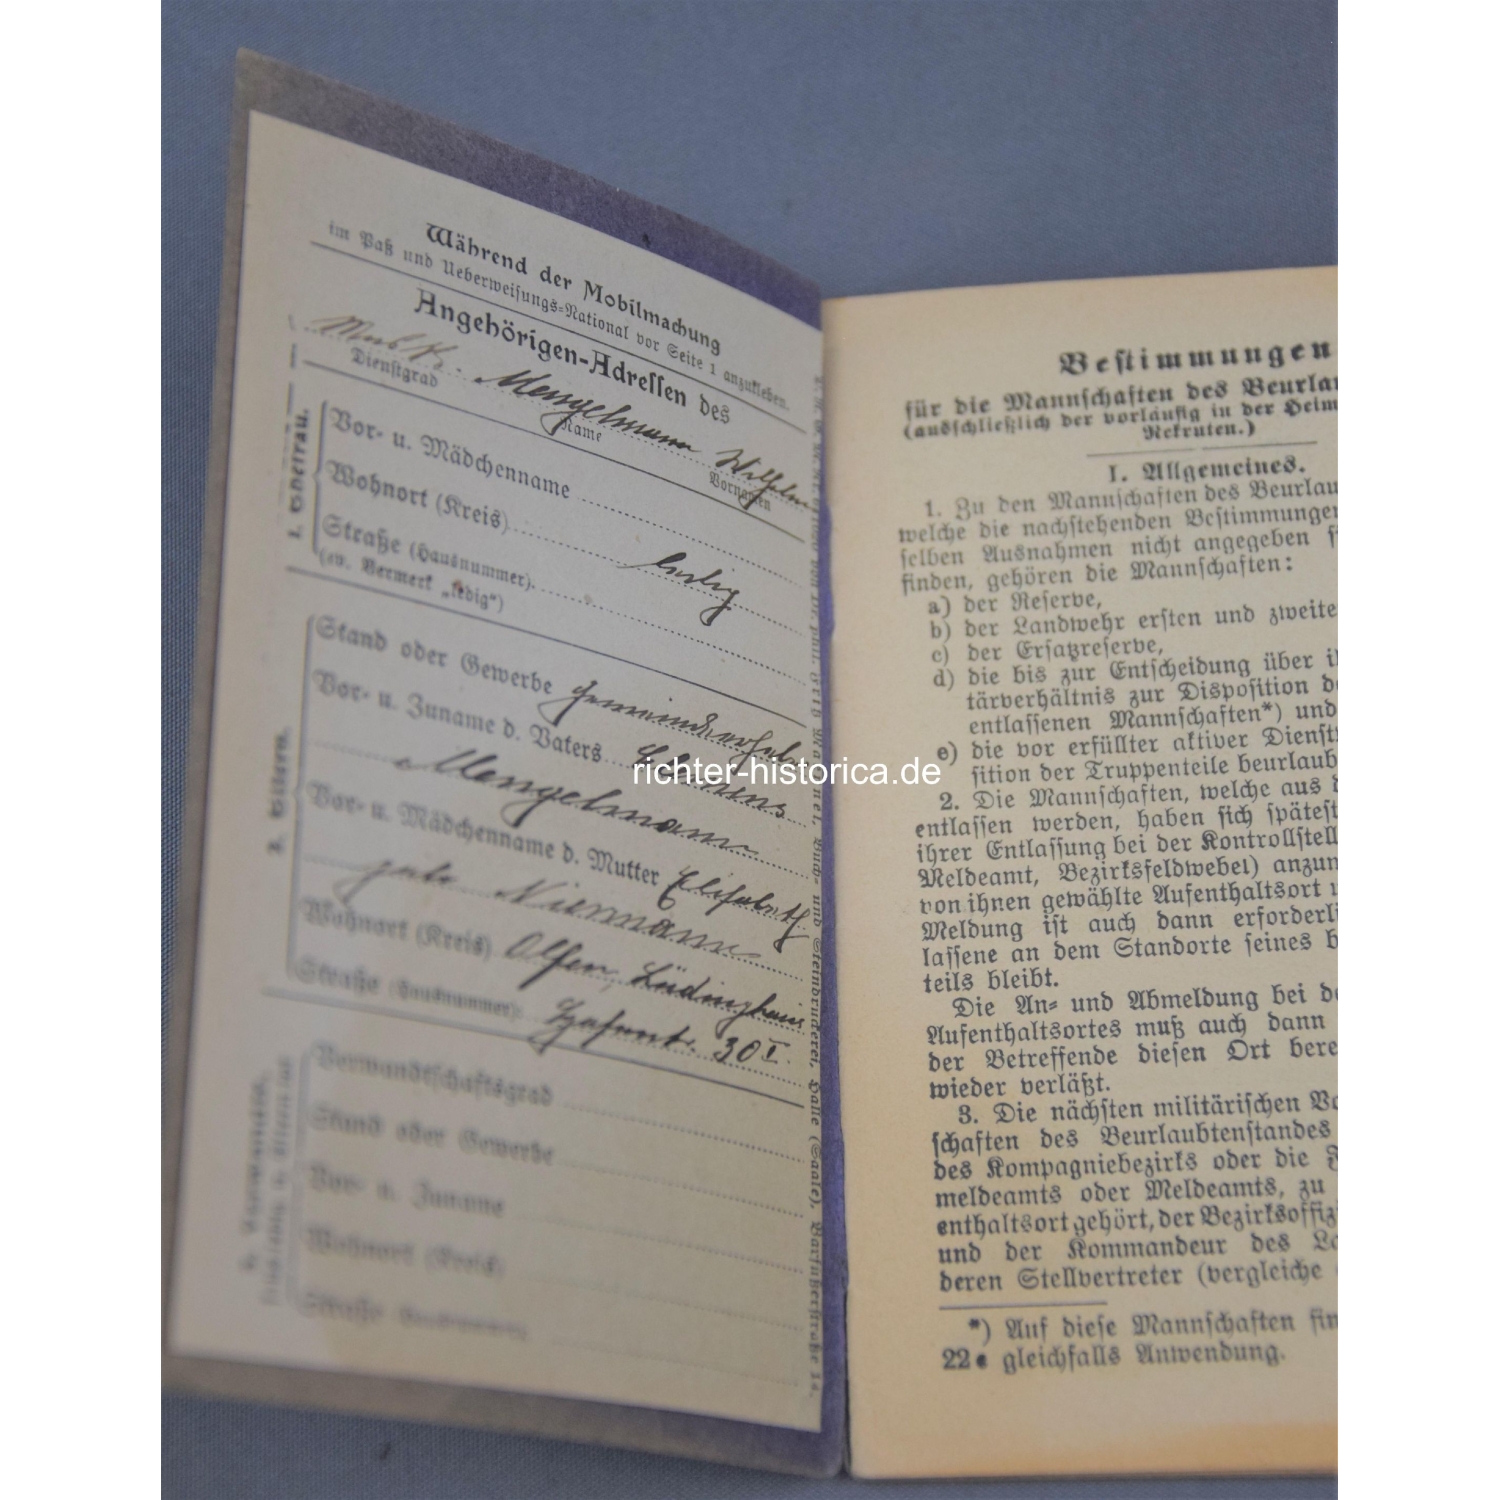 Während der Mobilmachung
im Paß und Ueberweisungs-National vor Seite 1 anzukleben.
Angehörigen-Adressen des
Musk. Mengelmann Wilhelm
Dienstgrad Name Vornamen
1. Ehefrau.
Vor- u. Mädchenname
Wohnort (Kreis) ledig
Straße (Hausnummer)
(ev. Vermerk „ledig“)
2. Eltern.
Stand oder Gewerbe
Vor- u. Zuname d. Vaters Clemens
Mengelmann
Vor- u. Mädchenname d. Mutter Elisabeth
geb. Niemann
Wohnort (Kreis) Olfen, Lüdinghaus
Straße (Hausnummer) 30 I.
Verwandtschaftsgrad
Stand oder Gewerbe
Vor- u. Zuname
Wohnort (Kreis)
Straße (Hausnummer)
Buch- und Steindruckerei, Halle (Saale), Barfüßerstraße
richter-historica.de
Bestimmungen
für die Mannschaften des Beurlau
(ausschließlich der vorläufig in der Heim
Rekruten.)
I. Allgemeines.
1. Zu den Mannschaften des Beurlau
welche die nachstehenden Bestimmungen
selben Ausnahmen nicht angegeben s
finden, gehören die Mannschaften:
a) der Reserve,
b) der Landwehr ersten und zweite
c) der Ersatzreserve,
d) die bis zur Entscheidung über i
tärverhältnis zur Disposition d
entlassenen Mannschaften*) und
e) die vor erfüllter aktiver Dienst
sition der Truppenteile beurlaub
2. Die Mannschaften, welche aus d
entlassen werden, haben sich spätest
ihrer Entlassung bei der Kontrollstell
Meldeamt, Bezirksfeldwebel) anzum
von ihnen gewählte Aufenthaltsort u
Meldung ist auch dann erforderli
lassene an dem Standorte seines b
teils bleibt.
Die An- und Abmeldung bei de
Aufenthaltsortes muß auch dann
der Betreffende diesen Ort bere
wieder verläßt.
3. Die nächsten militärischen Vo
schaften des Beurlaubtenstandes
des Kompagniebezirks oder die
meldeamts oder Meldeamts, zu
enthaltsort gehört, der Bezirksoffiz
und der Kommandeur des La
deren Stellvertreter (vergleiche
*) Auf diese Mannschaften fin
22e gleichfalls Anwendung.